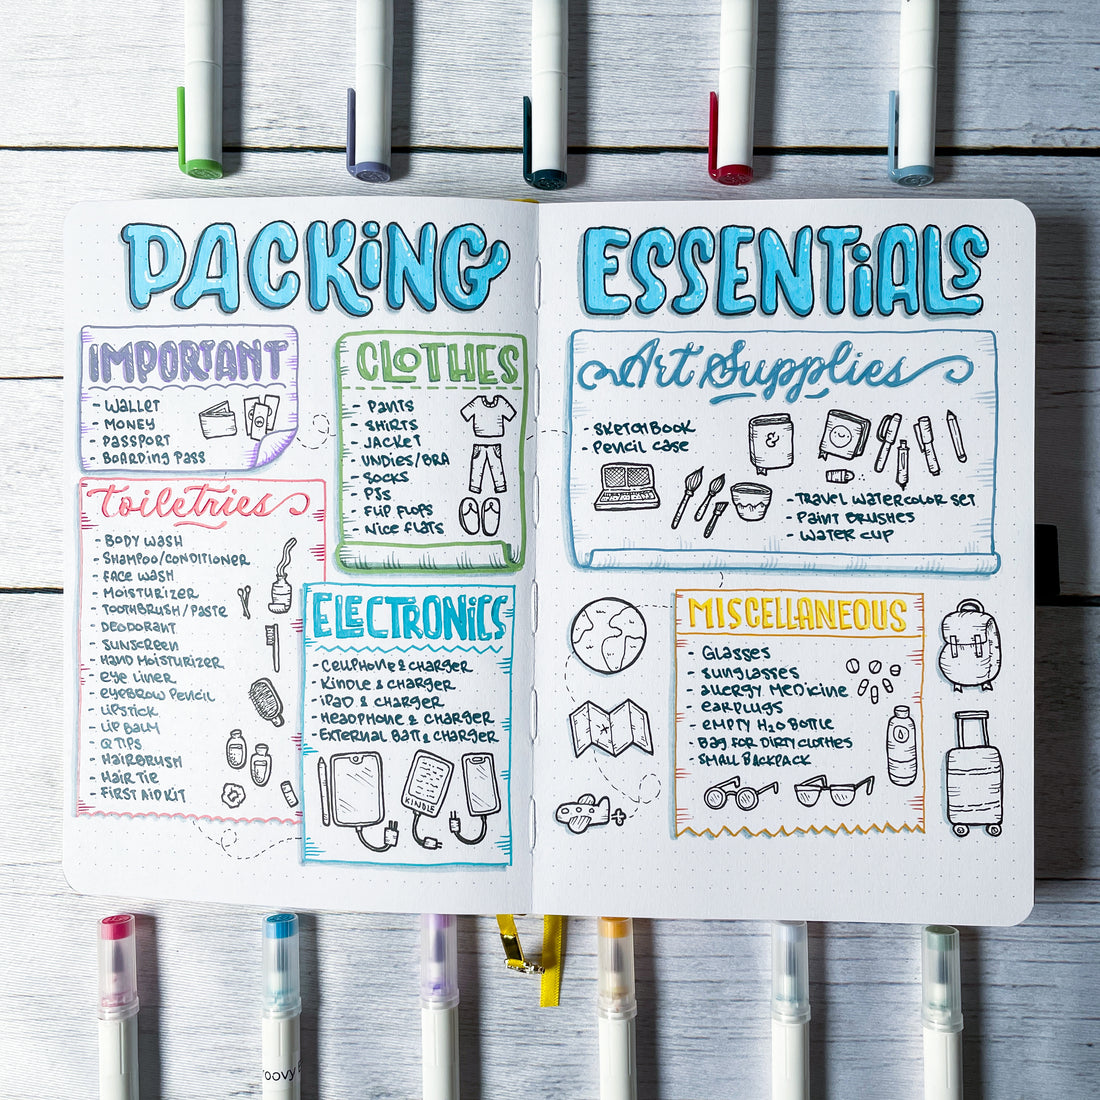 PACKiNG
ESSENTiALS
IMPORTANT
- WALLET
- MONEY
- PASSPORT
- BOARDING PASS
CLOTHES
- PANTS
- SHIRTS
- JACKET
- UNDIES/BRA
- SOCKS
- PJs
- FLIP FLOPS
- NICE FLATS
Toiletries
- BODY WASH
- SHAMPOO/CONDITIONER
- FACE WASH
- MOISTURIZER
- TOOTHBRUSH/PASTE
- DEODORANT
- SUNSCREEN
- HAND MOISTURIZER
- EYE LINER
- EYEBROW PENCIL
- LIPSTICK
- LIP BALM
- Q TIPS
- HAIRBRUSH
- HAIR TIE
- FIRST AID KIT
ELECTRONiCS
- CELLPHONE & CHARGER
- KINDLE & CHARGER
- iPAD & CHARGER
- HEADPHONE & CHARGER
- EXTERNAL BATT & CHARGER
KINDLE
Art Supplies
- SKETCHBOOK
- PENCIL CASE
&
- TRAVEL WATERCOLOR SET
- PAINT BRUSHES
- WATER CUP
MiSCELLANEOUS
- GLASSES
- SUNGLASSES
- ALLERGY MEDICINE
- EARPLUGS
- EMPTY H2O BOTTLE
- BAG FOR DIRTY CLOTHES
- SMALL BACKPACK
roovy